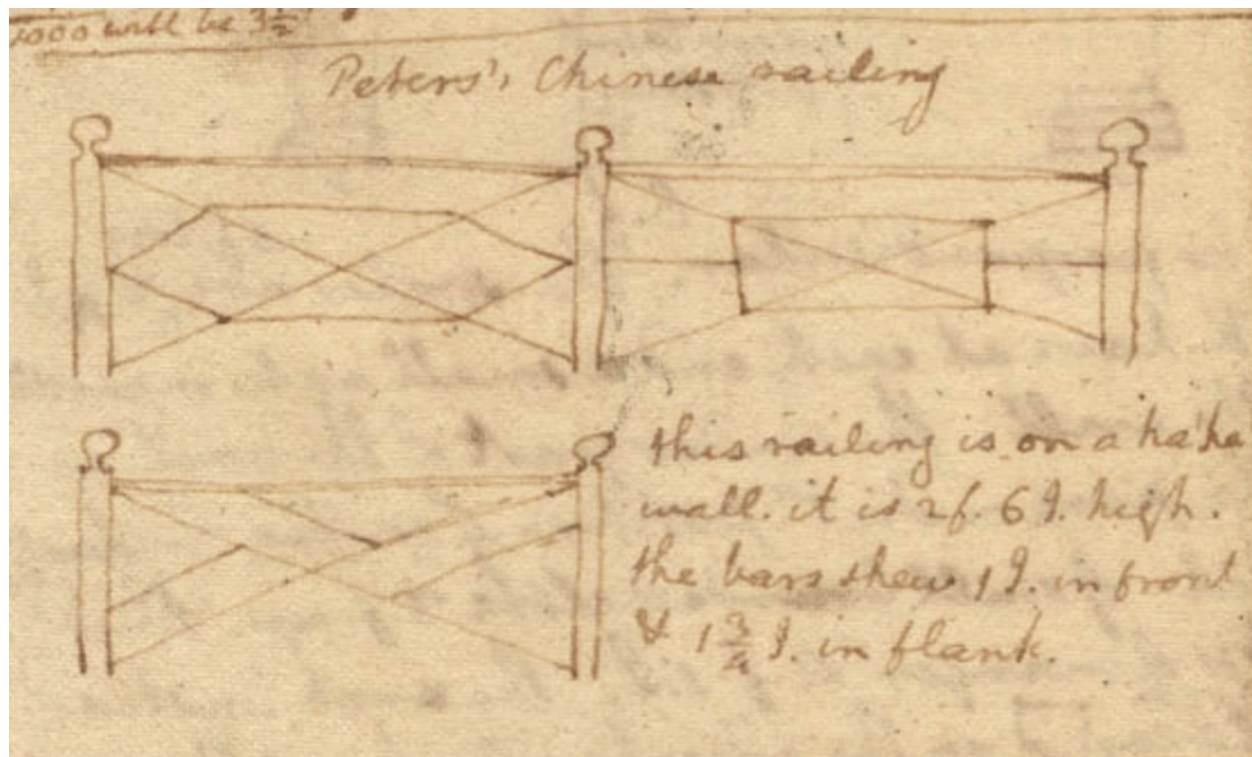 1000 will be 3½
Peters's Chinese railing
this railing is on a ha! ha
wall. it is 2f. 6 I. high.
the bars shew 1 I. in front
& 1 3/4 I. in flank.